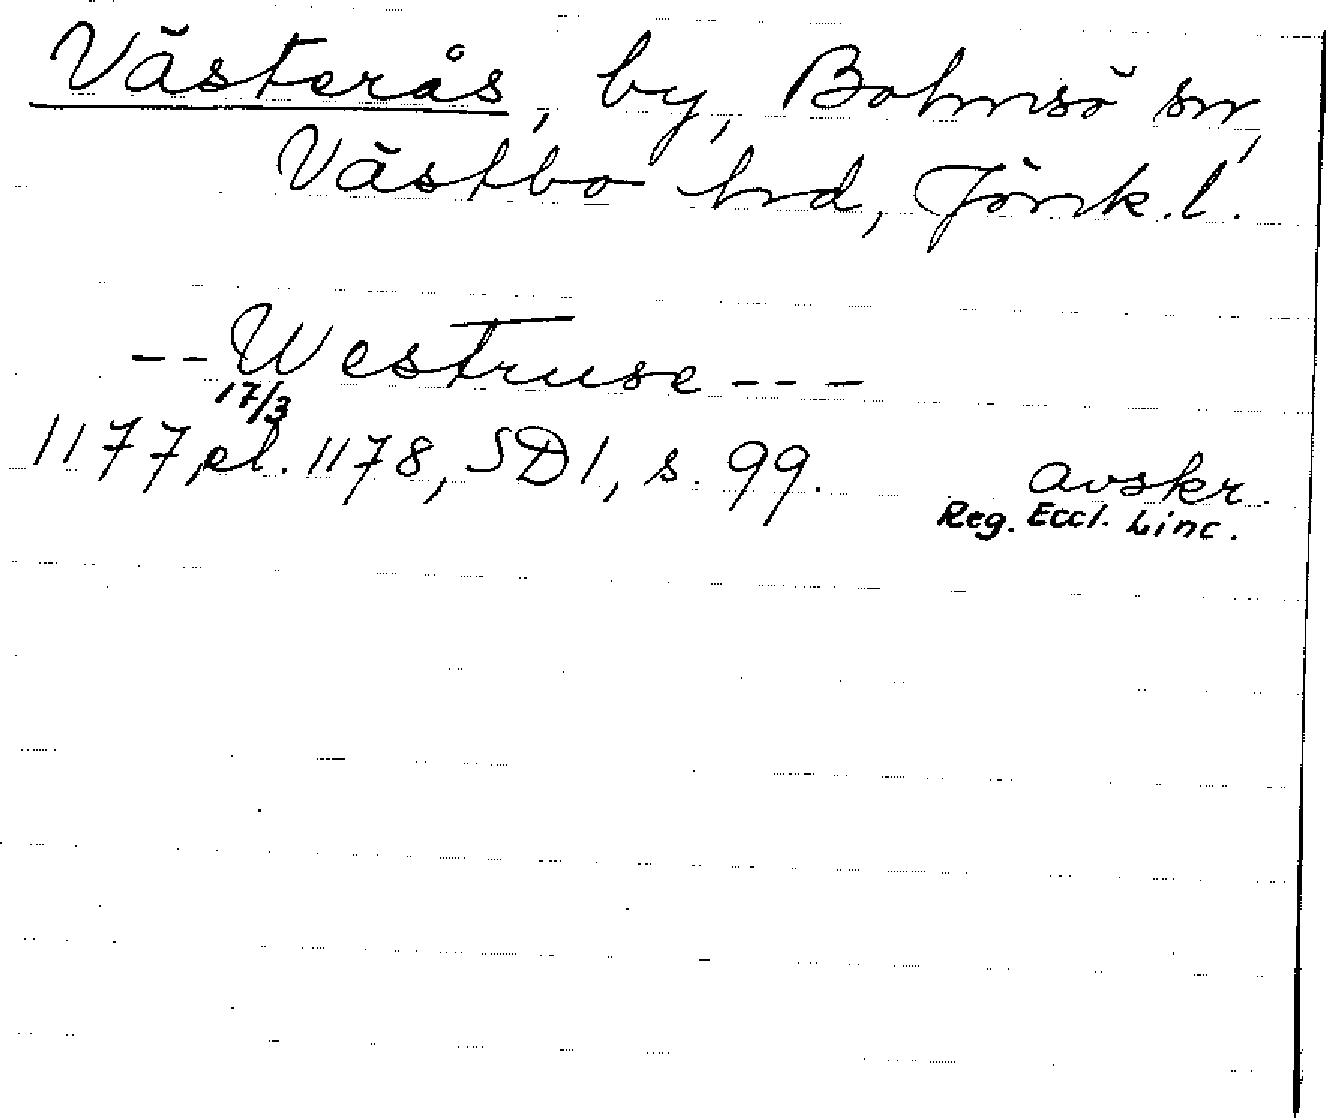 Västerås, by, Bolmsö sn,
Västbo hrd, Jönk.l.
-- Westruse ---
17/3
1177 el. 1178, SD 1, s. 99. avskr.
Reg. Eccl. Linc.